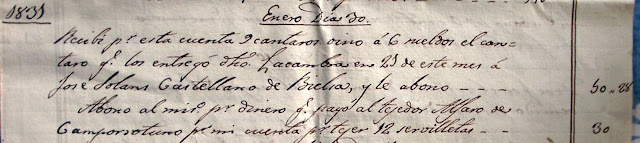 1831
Enero Dia 30.
Recibi pr. esta cuenta 9 cantaros vino á 6 sueldos el can-
taro q. los entregó dho. Lacambra en 23 de este mes á
José Solans Castellano de Bielsa, y le abono - - - 50 „ 28
Abono al mismo pr. dinero q. pagó al tejedor Alfaro de
Camporrotuno pr. mi cuenta pr. tejer 12 servilletas - - 30